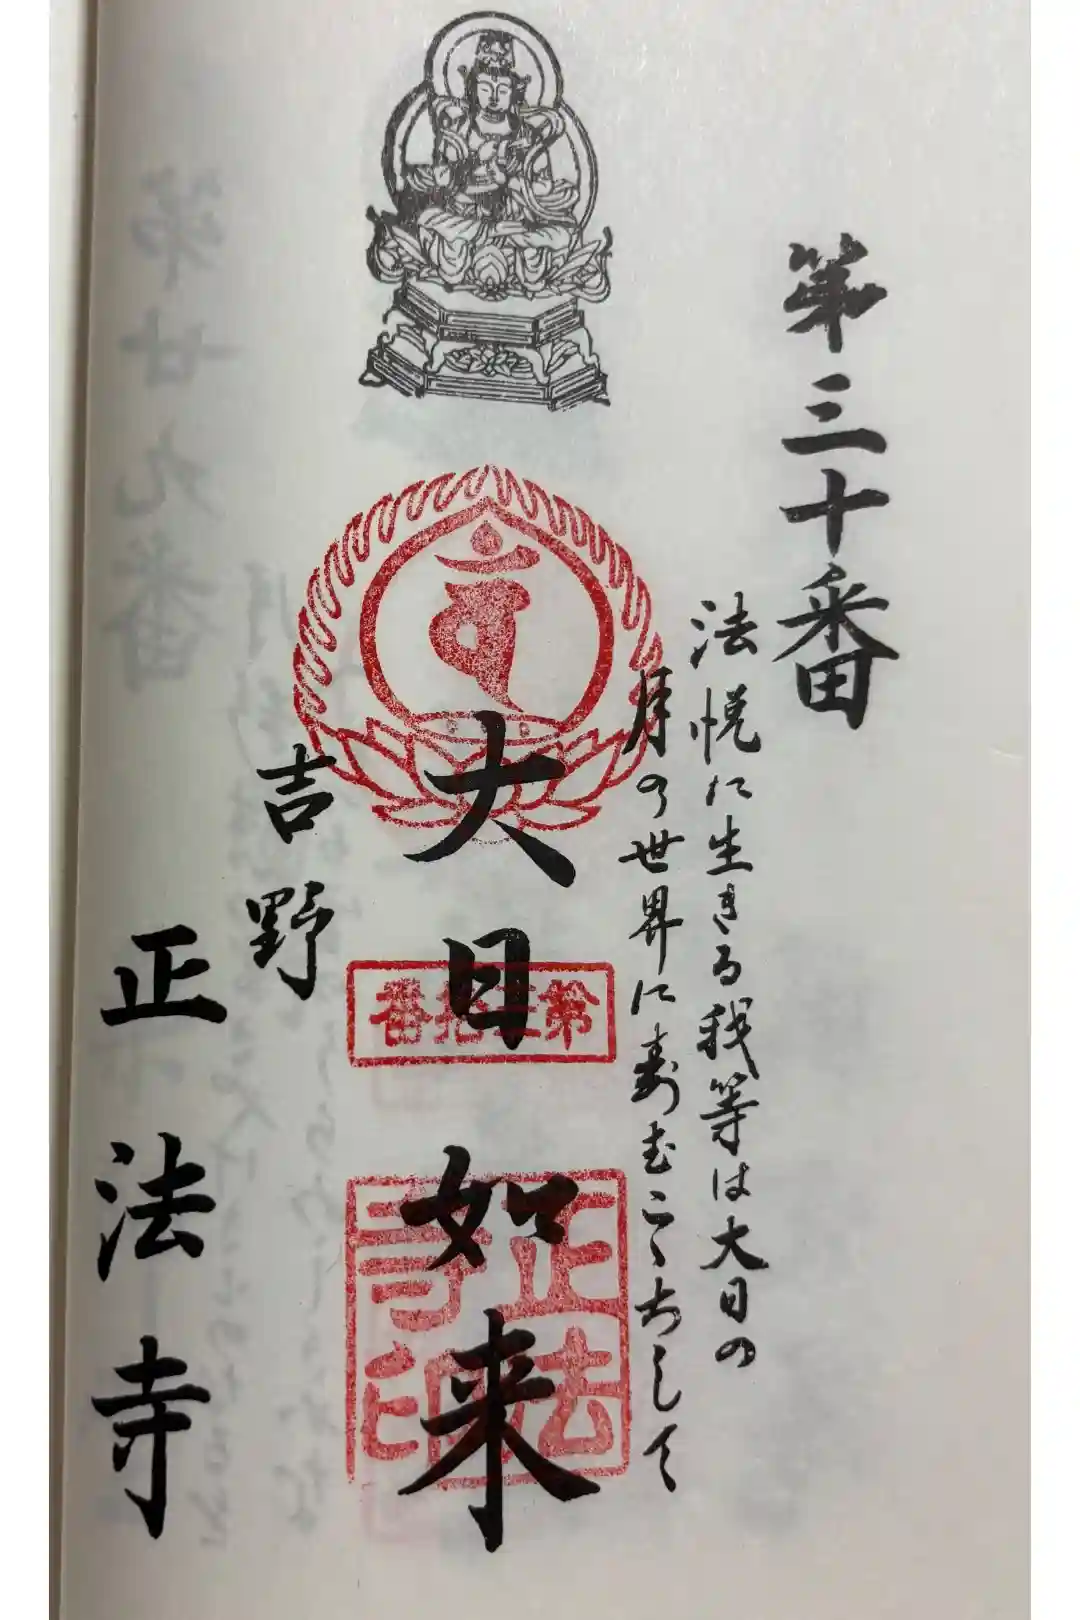 第三十番
法悦に生きる我等は大日の
月の世界に寿むこゝちして
大日如来
第三拾番
正法寺印
吉野
正法寺